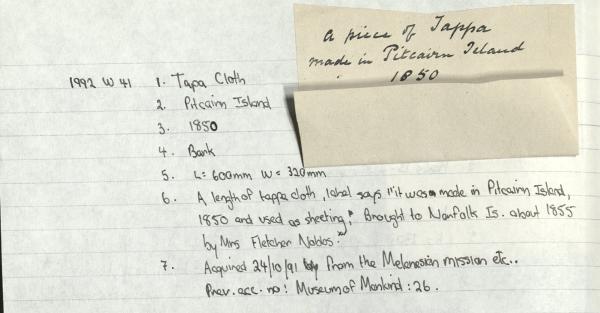 A piece of Tappa
made in Pitcairn Island
1850
1992 W 41 1. Tapa Cloth
2. Pitcairn Island
3. 1850
4. Bark
5. L= 600mm W= 320mm
6. A length of tappa cloth, label says "it was made in Pitcairn Island,
1850 and used as sheeting". Brought to Norfolk Is. about 1855
by Mrs Fletcher Nobbs."
7. Acquired 24/10/91 from the Melanesian mission etc..
Prev. acc. no: Museum of Mankind: 26.